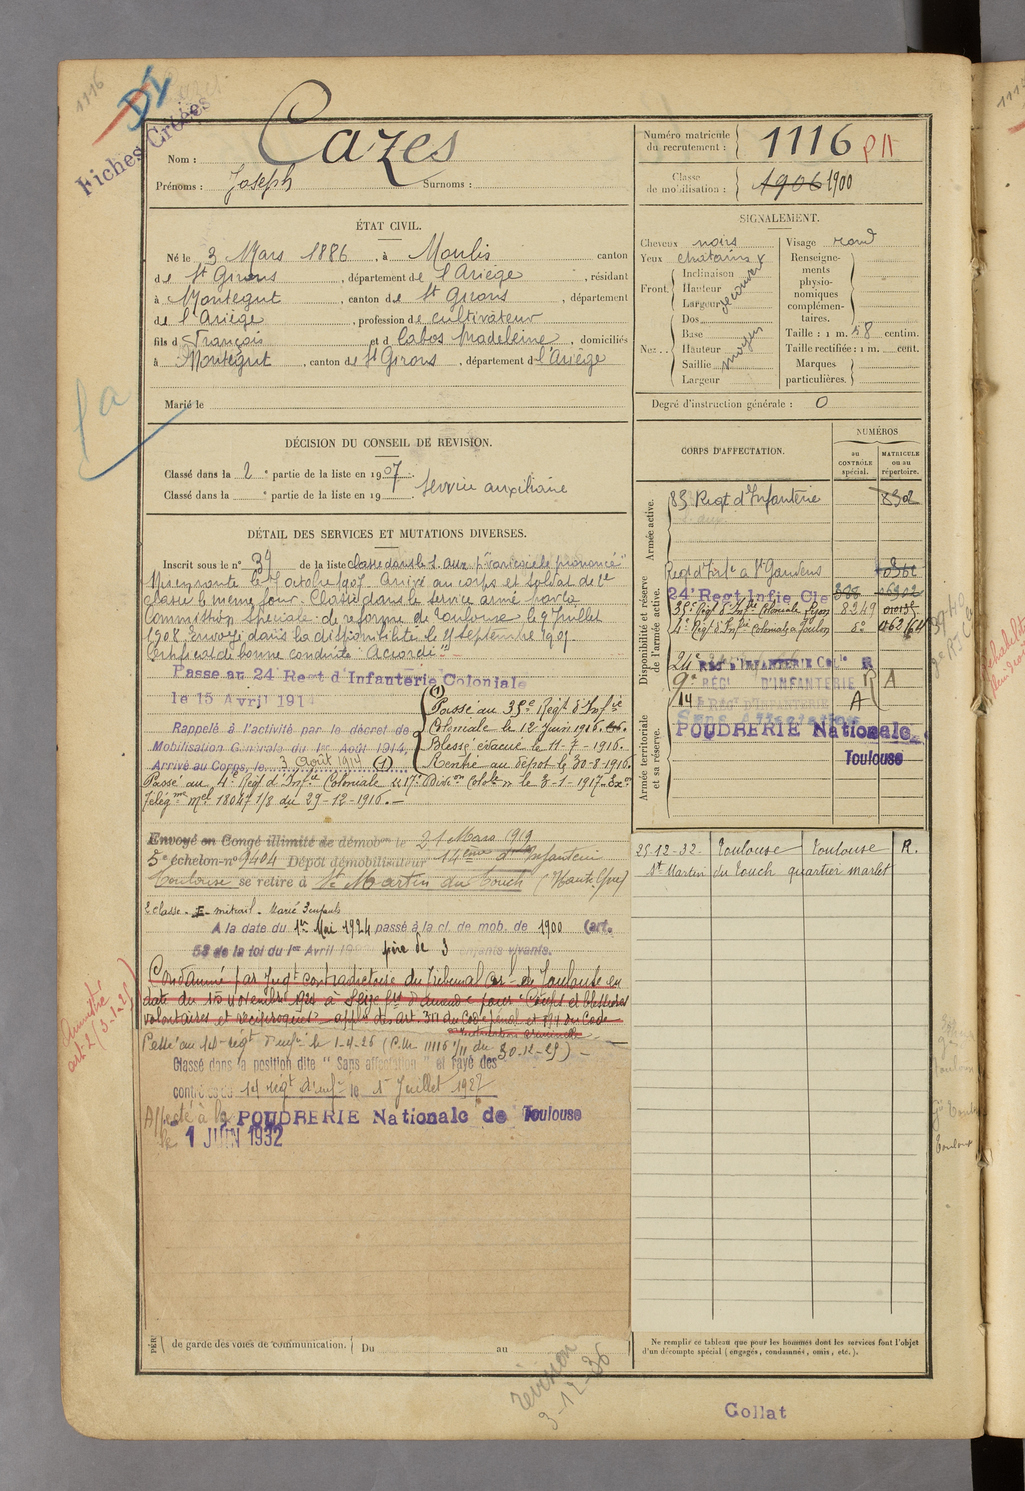 1116
Fiches Créées
Nom : Cazes
Prénoms : Joseph Surnoms :
Numéro matricule du recrutement : 1116
Classe de mobilisation : 1906 1900
ÉTAT CIVIL.
Né le 3 Mars 1886, à Moulis canton
de St Girons, département de l'Ariège, résidant
à Montégut, canton de St Girons, département
de l'Ariège, profession de cultivateur
fils de François et de Cabos Madeleine, domiciliés
à Montégut, canton de St Girons, département de l'Ariège
Marié le
SIGNALEMENT.
Cheveux noirs
Yeux chatains
Front. Inclinaison
Hauteur
Largeur
découvert
Nez.. Dos
Base
Hauteur
Saillie
Largeur
moyen
Visage rond
Renseignements physionomiques complémentaires.
Taille : 1 m. 58 centim.
Taille rectifiée : 1 m. cent.
Marques particulières.
Degré d'instruction générale : 0
DÉCISION DU CONSEIL DE RÉVISION.
Classé dans la 2e partie de la liste en 1907. Service auxiliaire
Classé dans la e partie de la liste en 19
DÉTAIL DES SERVICES ET MUTATIONS DIVERSES.
Inscrit sous le n° 39 de la liste classé dans le s. aux. pr "varicocèle prononcé"
Mis en route le 7 octobre 1907. Arrivé au corps et soldat de 2e
classe le même jour. Classé dans le service armé par la
Commission spéciale de réforme de Toulouse le 9 Juillet
1908. Envoyé dans la disponibilité le
Certificat de bonne conduite "Accordé"
Passé au 24e Regt d'Infanterie Coloniale
le 15 Avril 191
Rappelé à l'activité par le décret de
Mobilisation Générale du 1er Août 1914,
Arrivé au Corps, le 3 Août 1914 (1)
(1)
Passé au 35e Régt d'Infie
Coloniale le 12 Juin 1916.
Blessé évacué le 11-7-1916.
Rentré au dépôt le 30-8-1916.
Passé au 4e Régt d'Infie Coloniale 17e Divison Colole le 3-1-1917. Exon
Télégme Mel 18047 1/8 du 29-12-1916.
Envoyé en Congé illimité de démobon le 21 Mars 1919
5e échelon n° 9404 Dépôt démobilisateur 14ème d'Infanterie
Toulouse se retire à St Martin du Touch (Hte Gne)
A la date du 1er Mai 1924 passé à la cl. de mob. de 1900 (art.
58 de la loi du 1er Avril père de 3 enfants vivants.
Condamné par Jugt contradictoire du Tribunal de Toulouse en
date du 15 Novembre 1922 à Seize frs d'amende pour "Coups et blessures
volontaires et réciproques" applon des art. 311 du Code pénal et 194 du Code
d'instruction criminelle
Classé dans la position dite "Sans affectation" et rayé des
contrôles du 14 régt d'infie le 1er Juillet 1927
Affecté à la POUDRERIE Nationale de Toulouse
le 1 JUIN 1932
CORPS D'AFFECTATION.
NUMÉROS
AU CONTRÔLE spécial.
MATRICULE ou au répertoire.
Armée active.
Disponibilité et réserve de l'armée active.
Armée territoriale et sa réserve.
83 Regt d'Infanterie 8302
Regt d'Infie à St Gaudens
24e Regt Infie Cle
35e Régt d'Infie Coloniale Lyon 8249
4e Régt d'Infie Coloniale à Toulon
24e REGt D'INFANTERIE COLle R
9e RÉGt D'INFANTERIE R A
14e RÉGt D'INFANTERIE A
Sans affectation
POUDRERIE Nationale
Toulouse
25-12-32 Toulouse Toulouse R.
St Martin du Touch quartier marlet
de garde des voies de communication. Du au
Ne remplir ce tableau que pour les hommes dont les services font l'objet
d'un décompte spécial (engagés, condamnés, omis, etc.).
révision
3-12-36
Collat